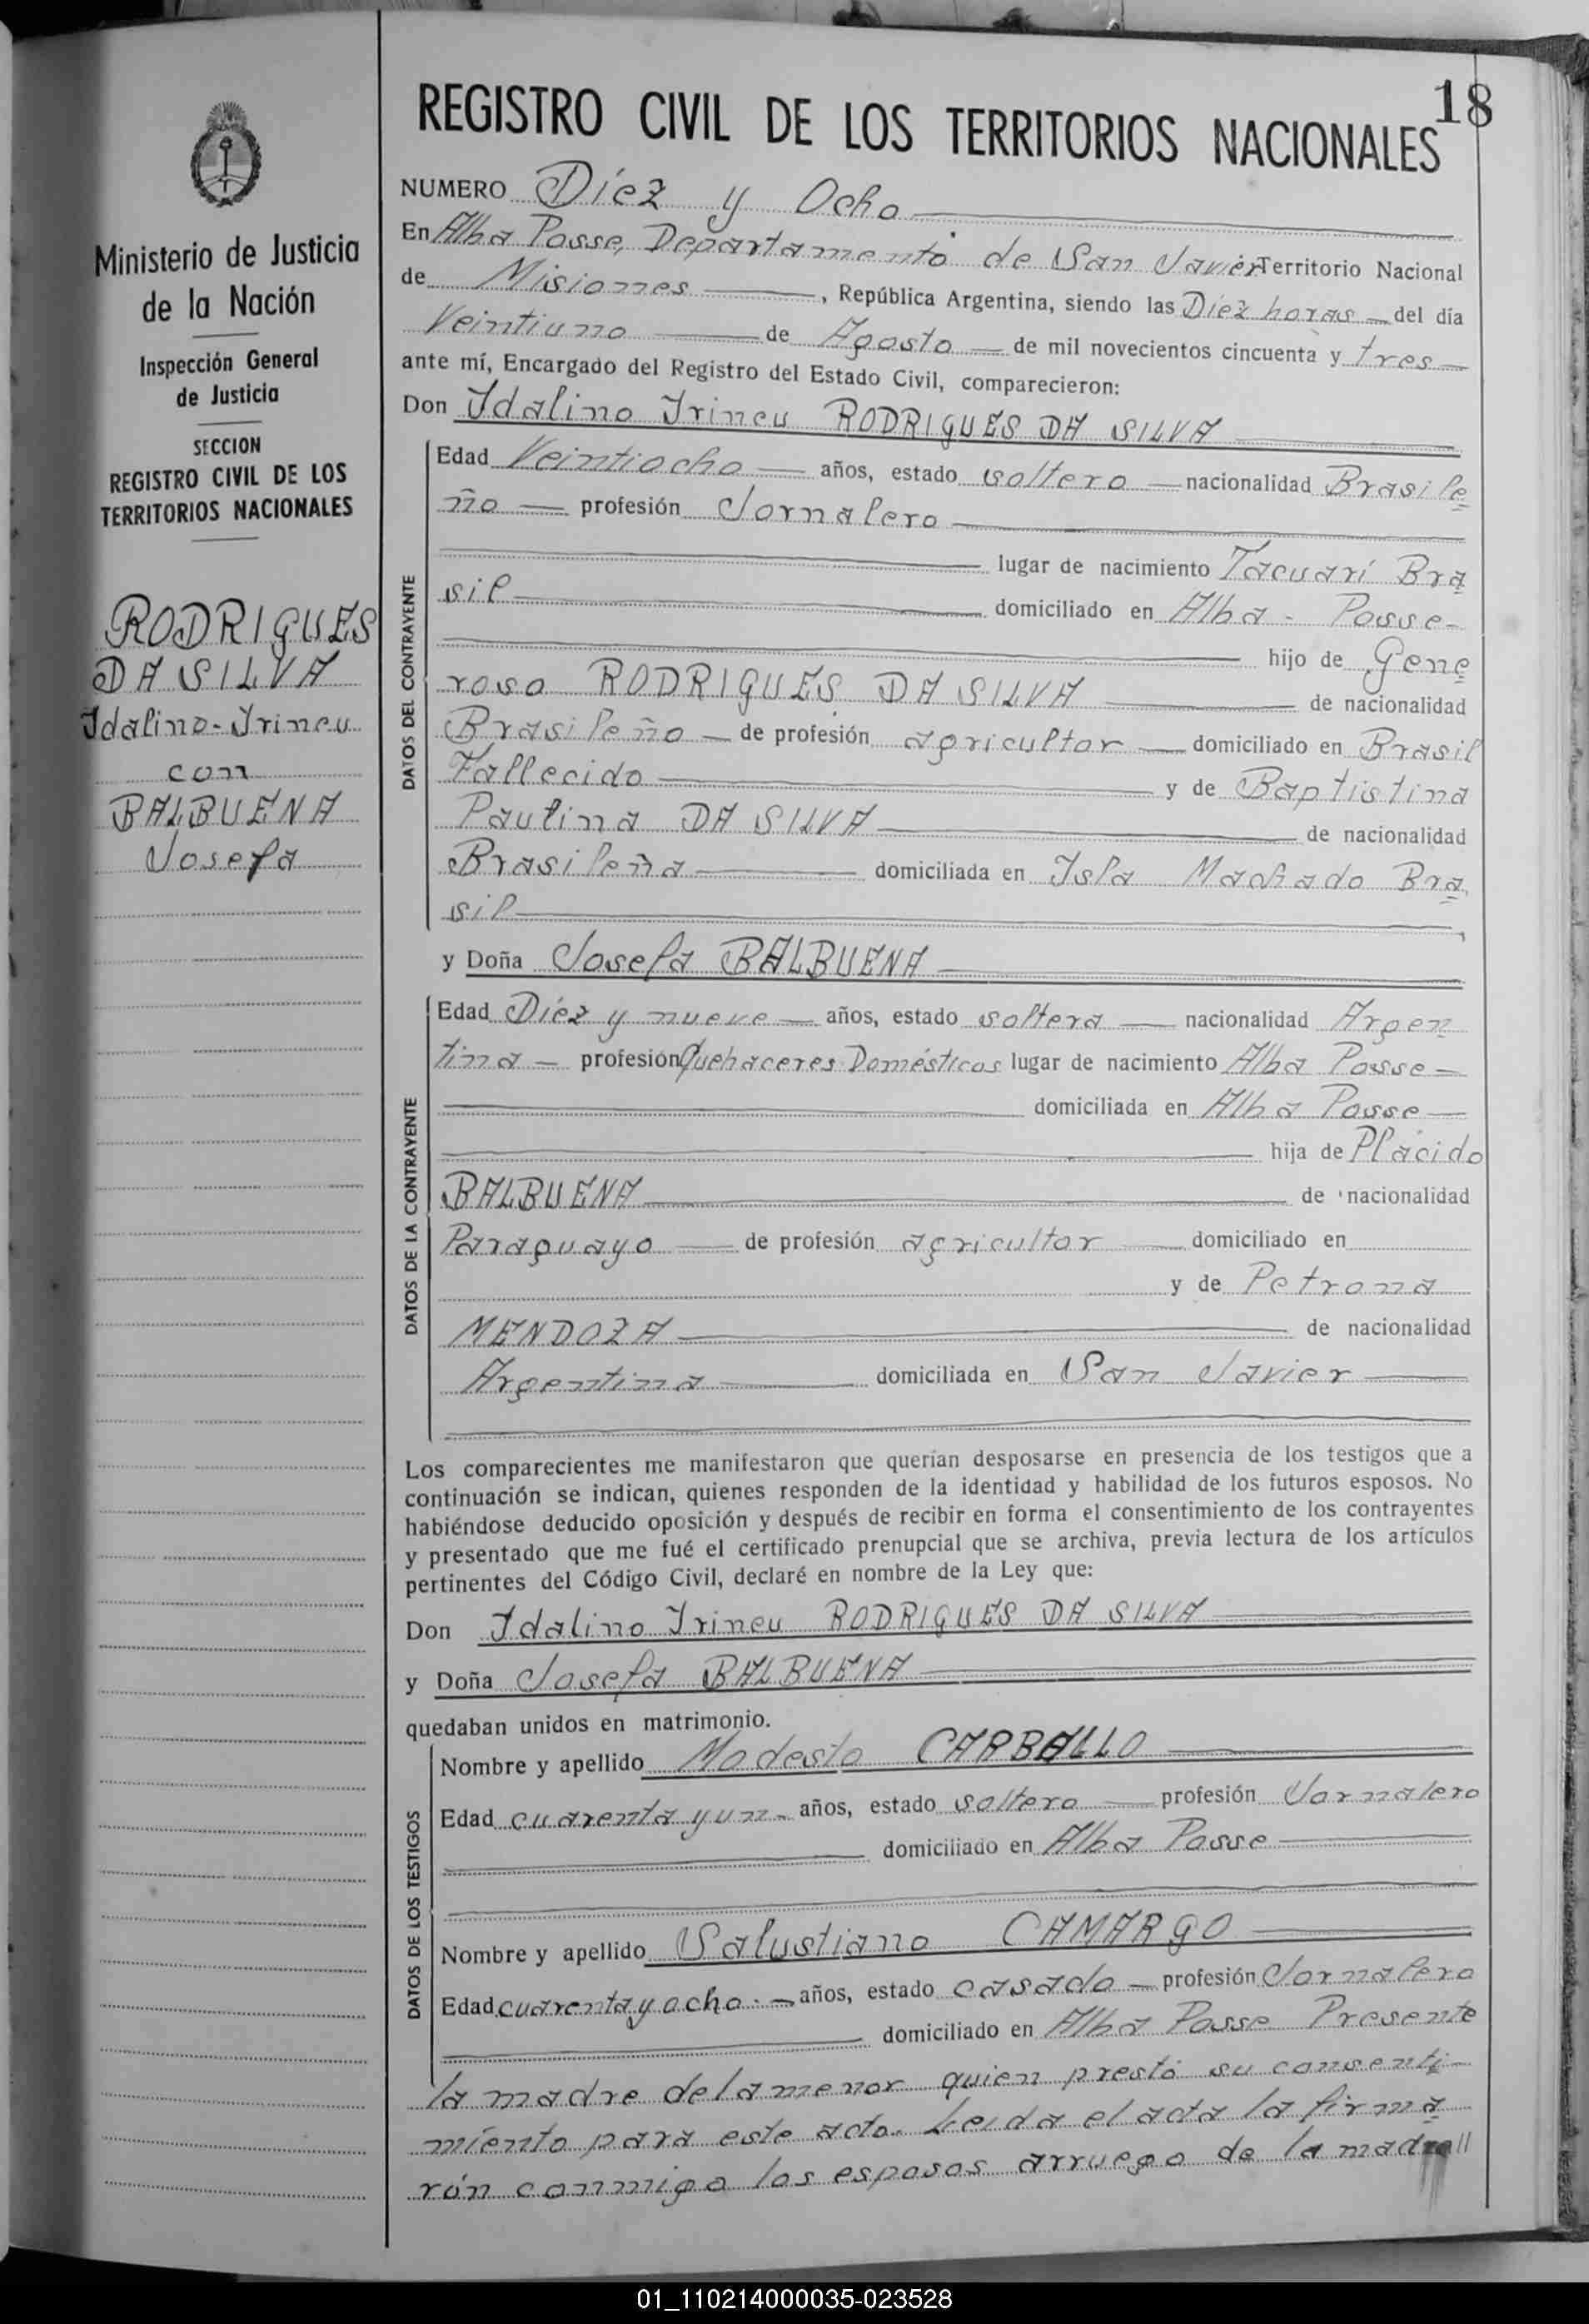 18
REGISTRO CIVIL DE LOS TERRITORIOS NACIONALES
Ministerio de Justicia
de la Nación
Inspección General
de Justicia
SECCION
REGISTRO CIVIL DE LOS
TERRITORIOS NACIONALES
RODRIGUES
DA SILVA
Idalino-Irineu
con
BALBUENA
Josefa
NUMERO Díez y Ocho
En Alba Posse, Departamento de San Javier Territorio Nacional
de Misiones, República Argentina, siendo las Díez horas del día
Veintiuno de Agosto de mil novecientos cincuenta y tres
ante mí, Encargado del Registro del Estado Civil, comparecieron:
Don Idalino Irineu RODRIGUES DA SILVA
DATOS DEL CONTRAYENTE
Edad Veintiocho años, estado soltero nacionalidad Brasile
ño profesión Jornalero
lugar de nacimiento Tacuarí Bra
sil domiciliado en Alba - Posse-
hijo de Gene
roso RODRIGUES DA SILVA de nacionalidad
Brasileño de profesión agricultor domiciliado en Brasil
Fallecido y de Baptistina
Paulina DA SILVA de nacionalidad
Brasileña domiciliada en Isla Machado Bra
sil
y Doña Josefa BALBUENA
DATOS DE LA CONTRAYENTE
Edad Díez y nueve años, estado soltera nacionalidad Argen
tina profesión Quehaceres Domésticos lugar de nacimiento Alba Posse
domiciliada en Alba Posse
hija de Plácido
BALBUENA de nacionalidad
Paraguayo de profesión agricultor domiciliado en
y de Petrona
MENDOZA de nacionalidad
Argentina domiciliada en San Javier
Los comparecientes me manifestaron que querían desposarse en presencia de los testigos que a
continuación se indican, quienes responden de la identidad y habilidad de los futuros esposos. No
habiéndose deducido oposición y después de recibir en forma el consentimiento de los contrayentes
y presentado que me fué el certificado prenupcial que se archiva, previa lectura de los artículos
pertinentes del Código Civil, declaré en nombre de la Ley que:
Don Idalino Irineu RODRIGUES DA SILVA
y Doña Josefa BALBUENA
quedaban unidos en matrimonio.
DATOS DE LOS TESTIGOS
Nombre y apellido Modesto CARBALLO
Edad cuarenta y un años, estado soltero profesión Jornalero
domiciliado en Alba Posse
Nombre y apellido Salustiano CAMARGO
Edad cuarenta y ocho.- años, estado casado profesión Jornalero
domiciliado en Alba Posse Presente
la madre de la menor quien prestó su consenti-
miento para este acto. Leída el acta la firma
rón conmigo los esposos arruego de la madre
01_110214000035-023528